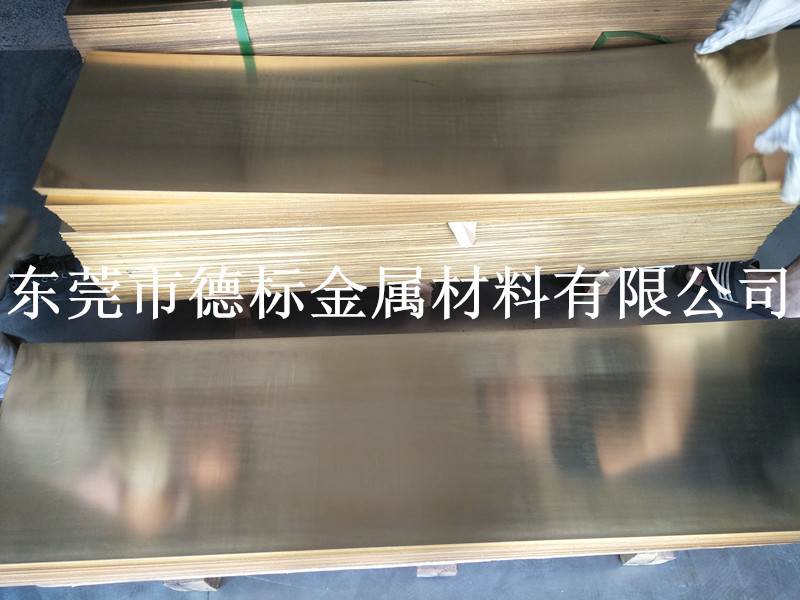 东莞市德标金属材料有限公司